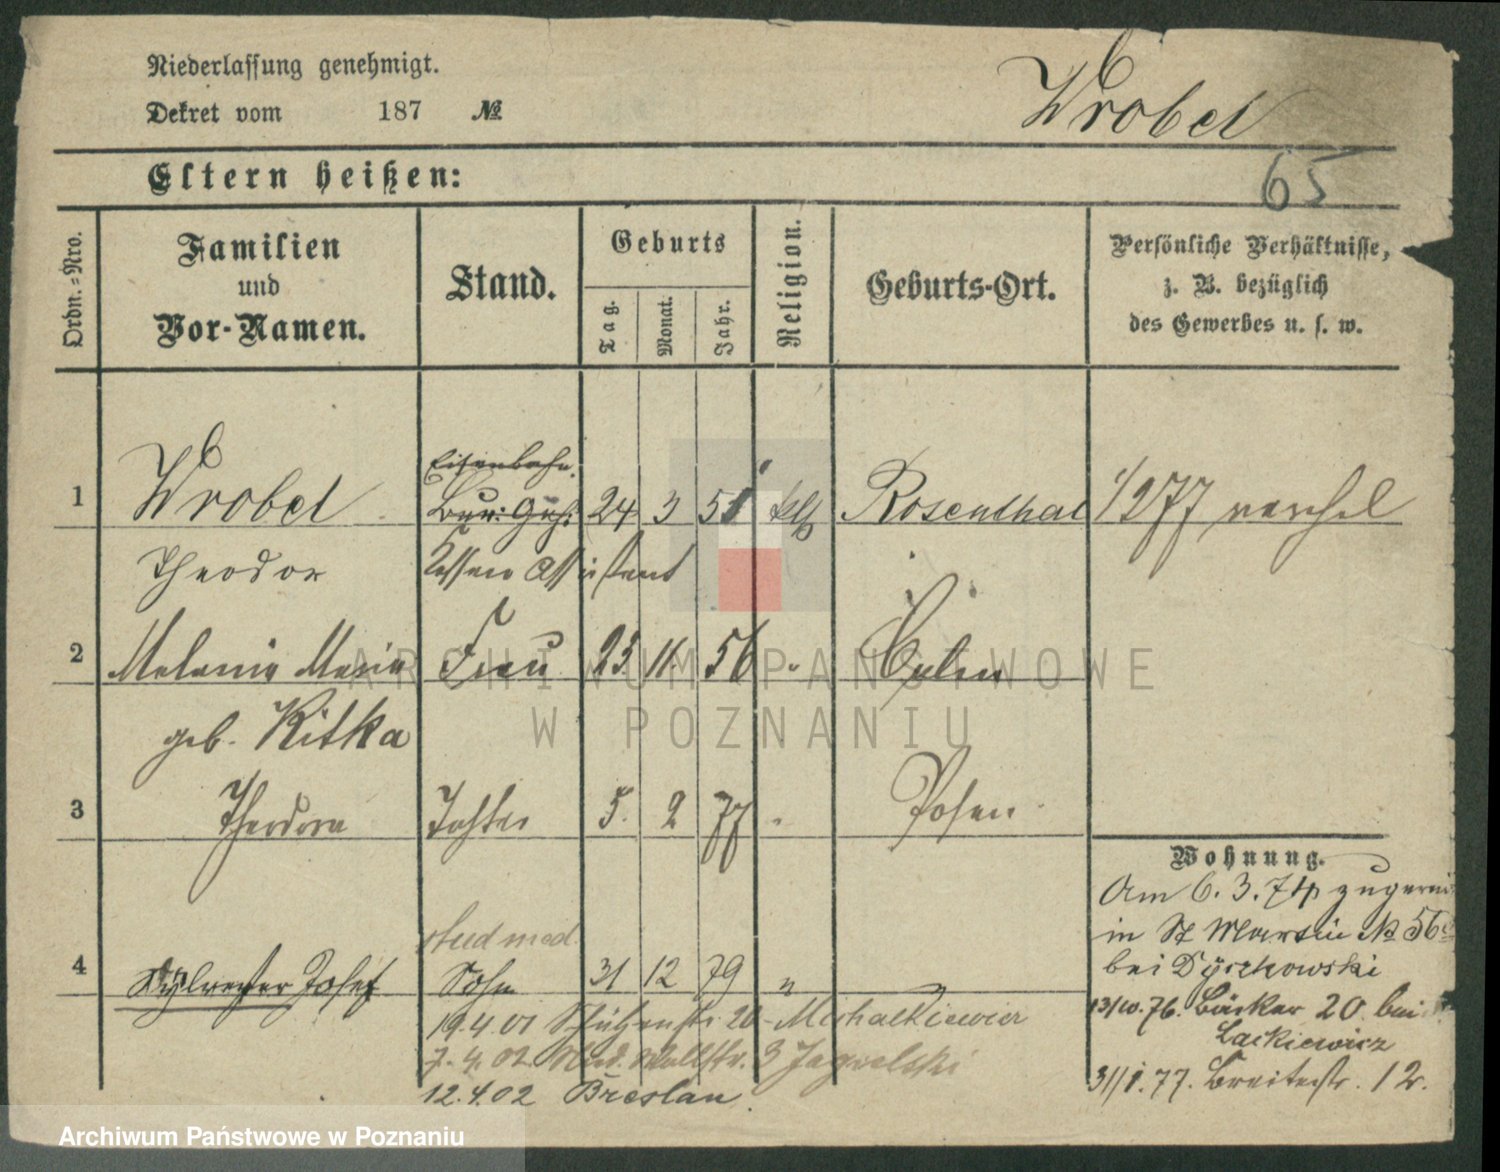 Niederlassung genehmigt.
Dekret vom 187 №
Wrobel
65
Eltern heißen:
Ordn.-Nro.
Familien
und
Vor-Namen.
Stand.
Geburts
Tag.
Monat.
Jahr.
Religion.
Geburts-Ort.
Persönliche Verhältnisse,
z. B. bezüglich
des Gewerbes u. s. w.
Eisenbahn
1 Wrobel 24 3 51 kth Rosenthal
Theodor Assistent
2 Melanie Marie Frau 23 11. 56 "
geb. Kitka
3 Theodora Tochter 5. 2 77 " Posen
Wohnung.
Am 6. 3. 74
in St Martin № 56
bei Dyszkowski
stud med.
4 Sylvester Josef Sohn 31 12 79 "
76. Bäcker 20 bei
Lackiewicz
31/1. 77. Breitestr. 12.
19.4.01 Schützenstr. 20 Michalkiewicz
7.4.02 Wallstr. 3
12.4.02 Breslau.
ARCHIWUM PAŃSTWOWE
W POZNANIU
Archiwum Państwowe w Poznaniu